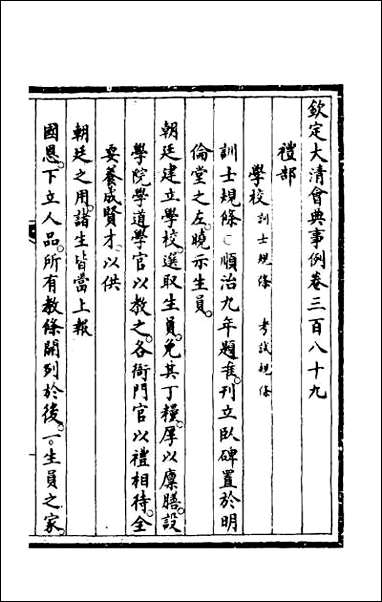 欽定大清會典事例卷三百八十九
禮部
學校訓士規條 考試規條
訓士規條○順治九年題准刊立臥碑置於明
倫堂之左曉示生員。
朝廷建立學校。選取生員。免其丁糧。厚以廩膳。設
學院學道學官以教之。各衙門官以禮相待。全
要養成賢才。以供
朝廷之用。諸生皆當上報
國恩。下立人品。所有教條開列於後。一。生員之家。